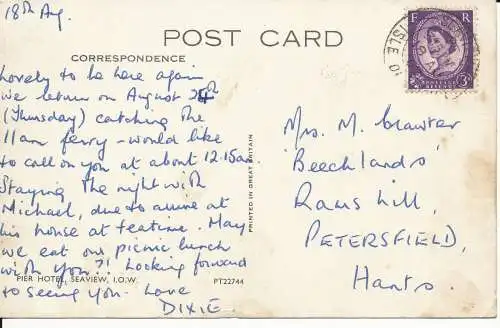 18th Aug.
POST CARD
CORRESPONDENCE
Lovely to be here again
we return on August 24th
(Thursday) catching the
11am ferry - would like
to call on you at about 12.15am.
Staying the night with
Michael, due to arrive at
his house at teatime. May
we eat our picnic lunch
with you?! Looking forward
to seeing you. Love
DIXIE.
PIER HOTEL, SEAVIEW, I.O.W.
PT22744
PRINTED IN GREAT BRITAIN
F R
3D
ISLE O
Mrs. M. Crawter
'Beechlands'
Rams hill,
PETERSFIELD,
Hants.